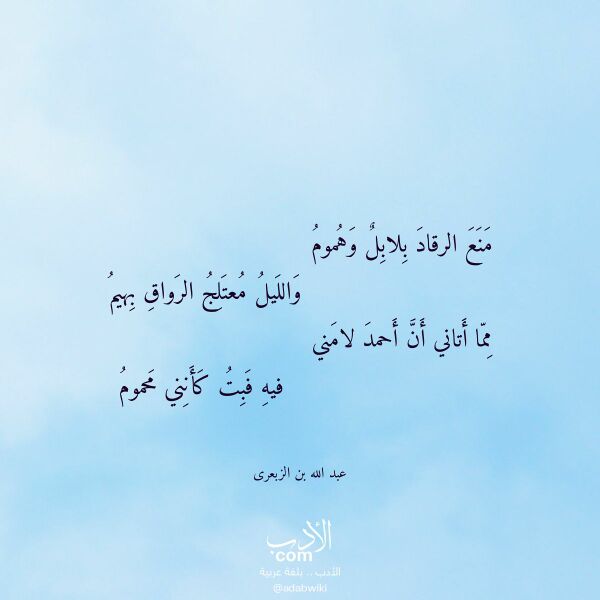 مَنَعَ الرقادَ بِلابِلٌ وَهُمومُ
وَاللَيلُ مُعتَلِجُ الرَواقِ بِهيمُ
مِمّا أَتاني أَنَّ أَحمدَ لامَني
فيهِ فَبِتُ كَأَنِني مَحمومُ
عبد الله بن الزبعرى
الأدب
com
الأدب .. بلغة عربية
@adabwiki